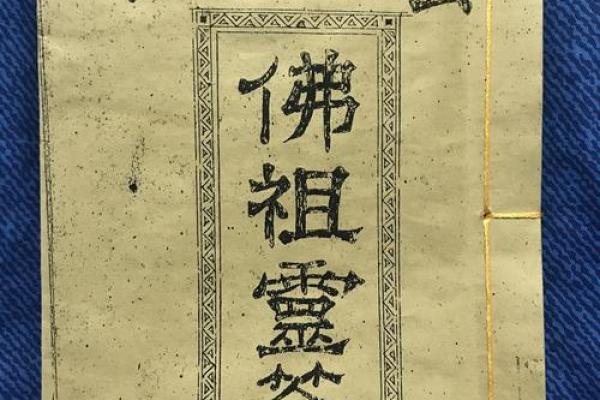 佛祖靈